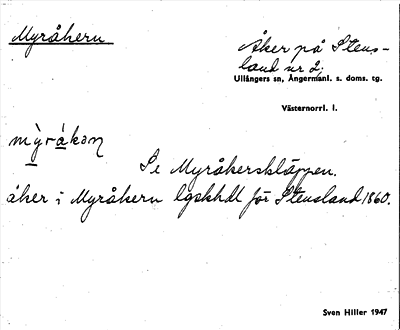 Myråkern
Åker på Stens-
land nr 2.
Ullångers sn, Ångermanl. s. doms. tg.
Västernorrl. l.
mỳråkaɳ
Se Myråkerskläppen.
åker i Myråkern lgskhdl för Stensland 1860.
Sven Hiller 1947